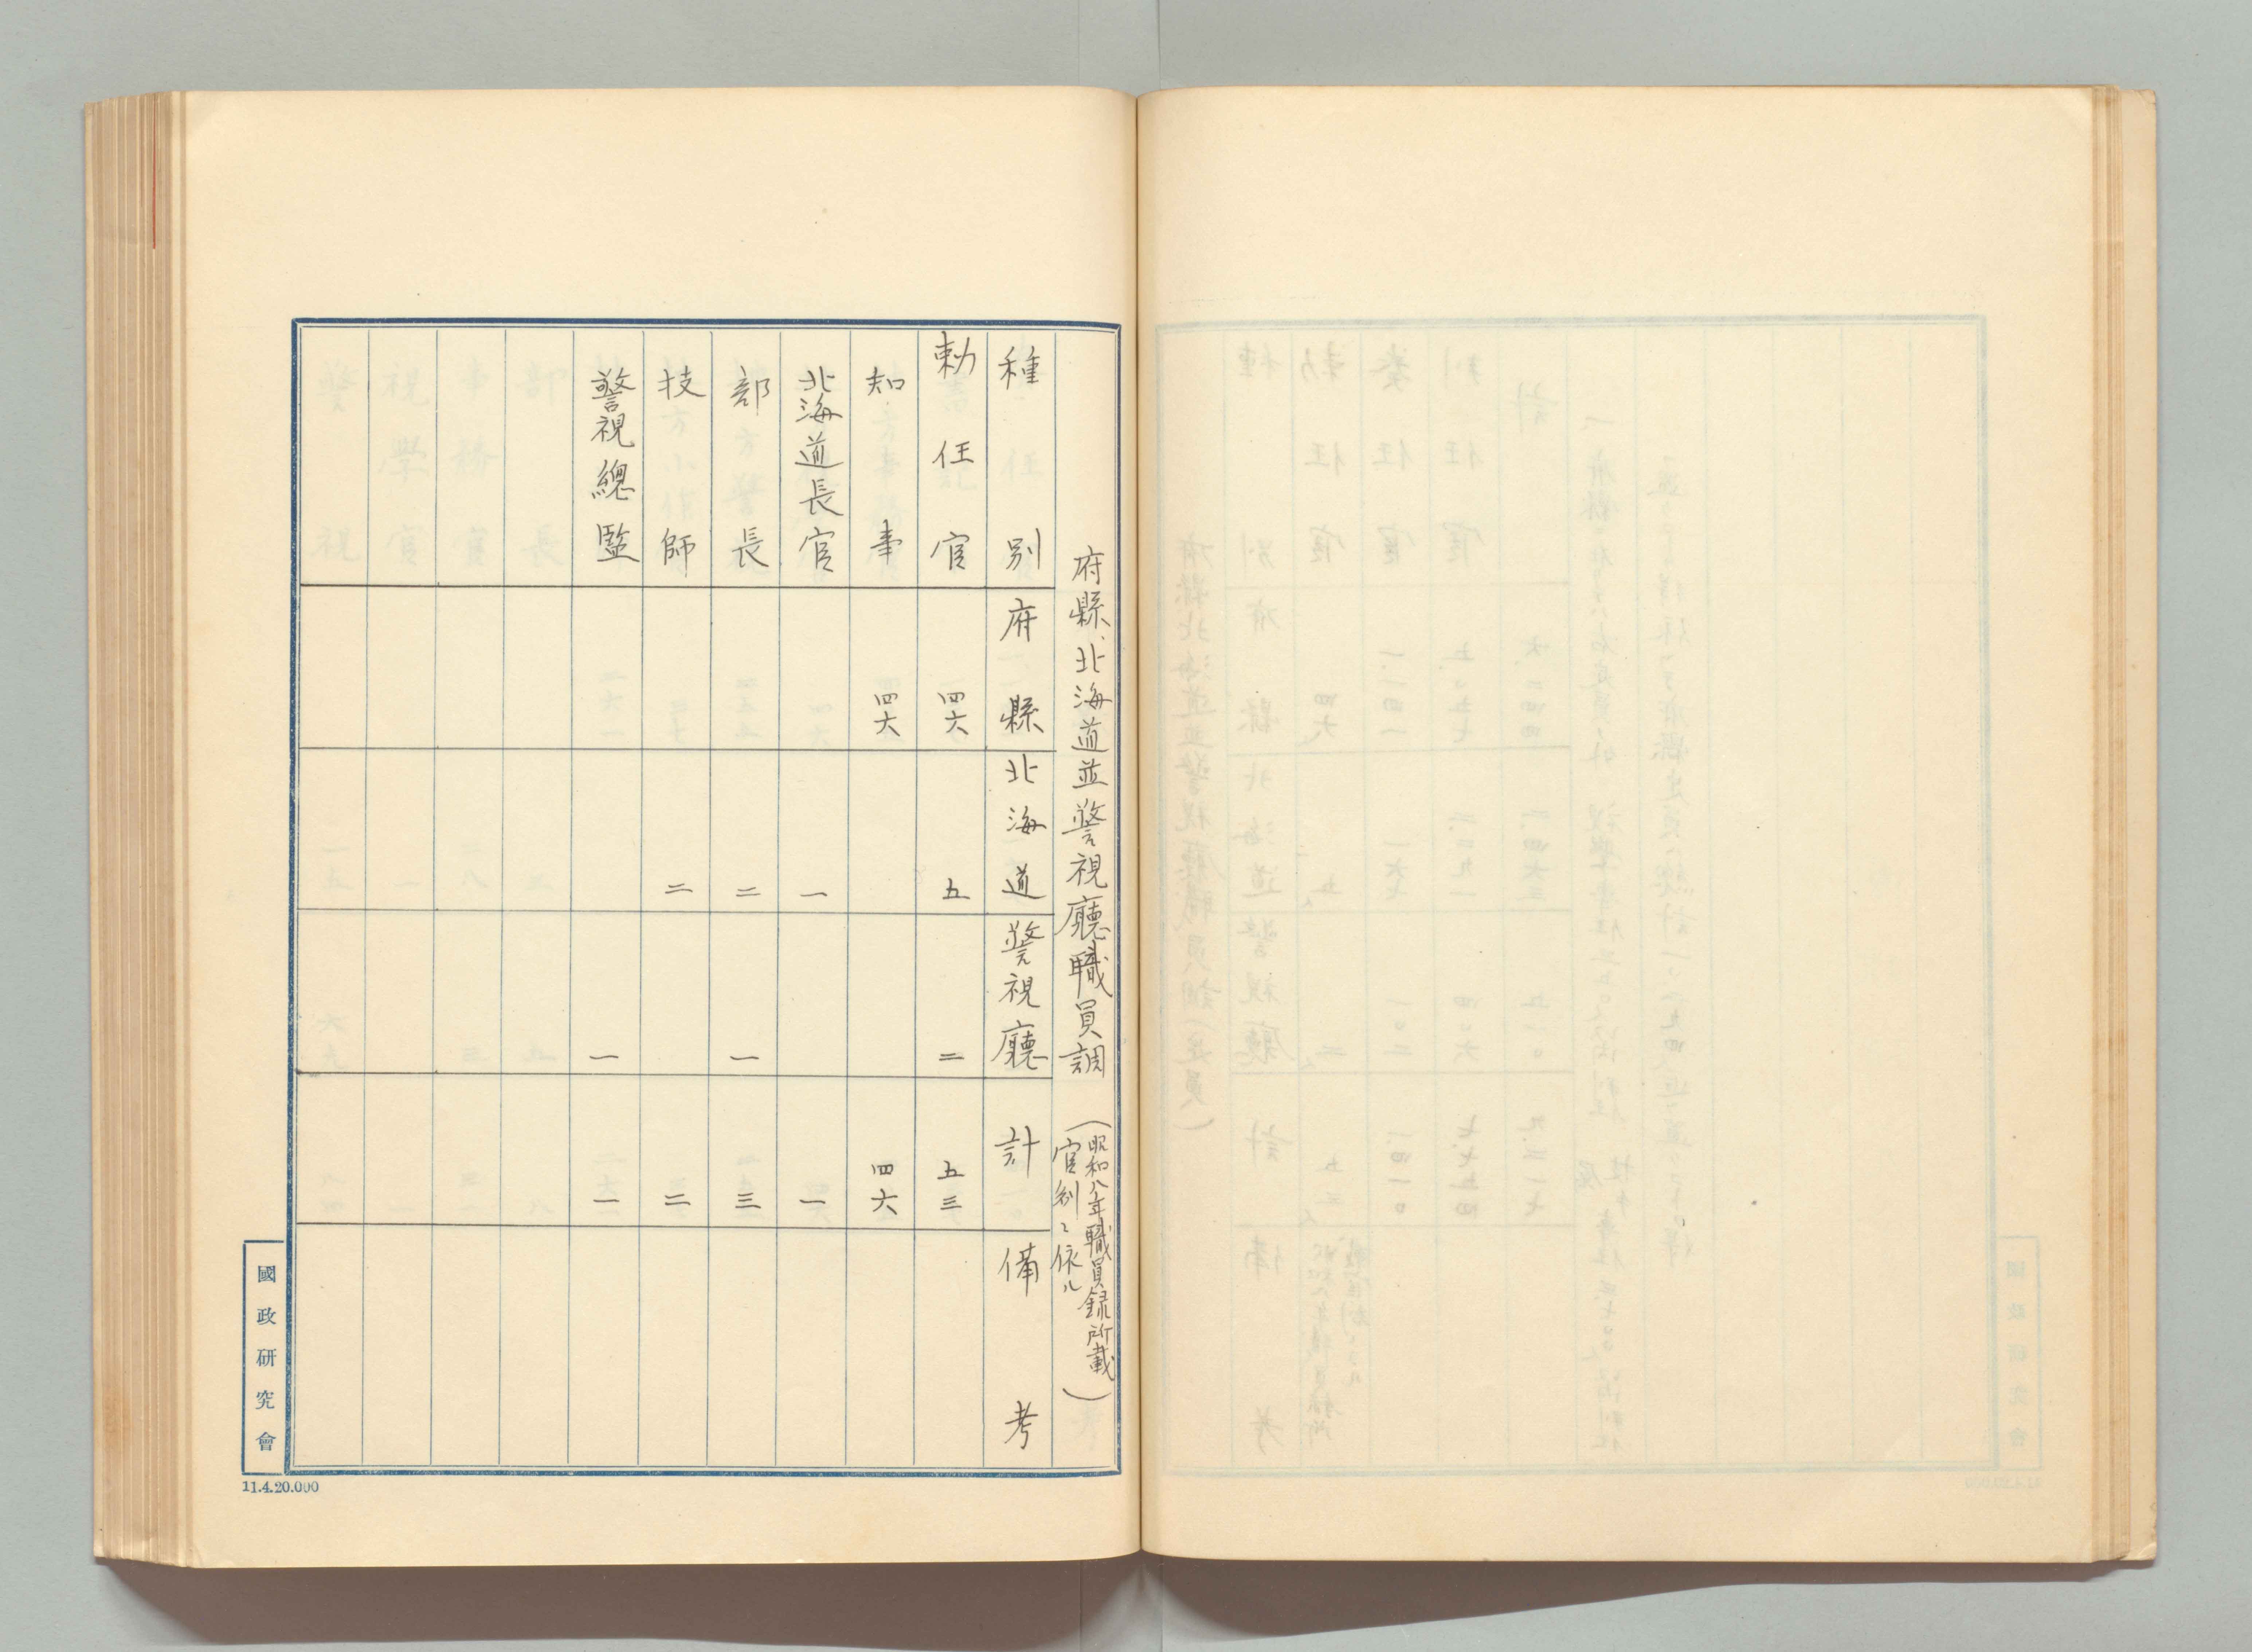 府縣、北海道並警視廳職員調
(昭和八年職員録所載
官制ニ依ル)
種別 府縣 北海道 警視廳 計 備考
勅任官 四六 五 二 五三
知事 四六 四六
北海道長官 一 一
部長 二 一 三
技師 二 二
警視總監 一 一
國政研究會
11.4.20.000